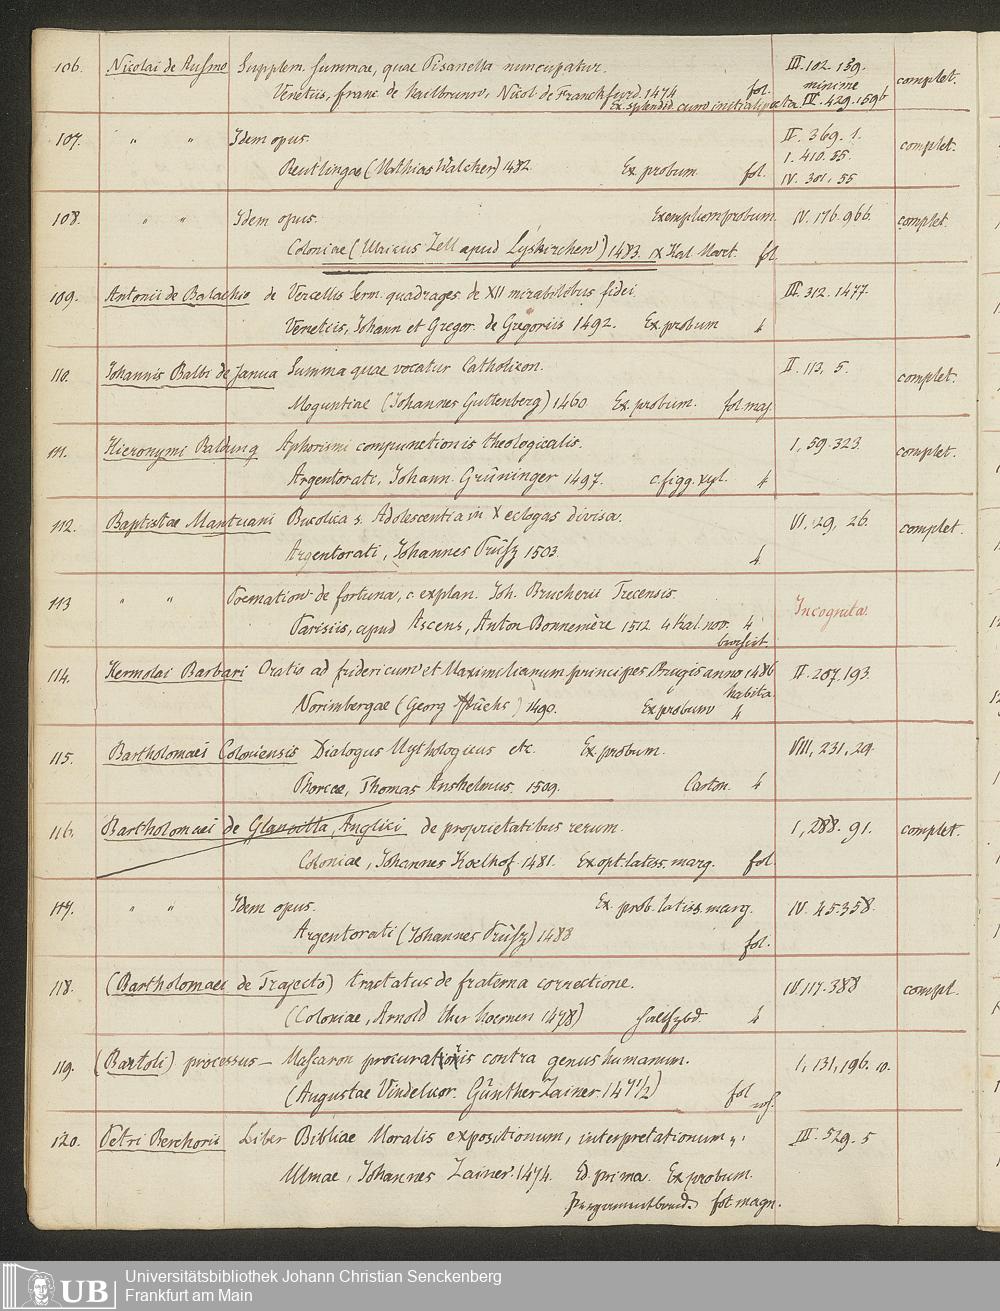 106. Nicolai de Ausmo Supplem. summae, quae Pisanella nuncupatur. III. 102. 159. complet.
Venetiis, franc. de Hailbrunn, Nicol. de Franckfurd. 1474 fol. minime
Ex. splendid. cum initial. picta. IV. 429. 159b
107. " " Idem opus. II. 369. 1. complet.
Reutlingae (Mathias Walcher) 1482. Ex probum fol. I. 410. 55.
IV. 301, 55
108. " " Idem opus. Exemplum probum. IV. 176. 966. complet.
Coloniae (Ulricus Zell apud Lyskirchen) 1483. IX Kal. Mart. fol.
109. Antonii de Balachio de Vercellis Serm. quadrages. de XII mirabilibus fidei III. 312. 1477
Venetiis, Johann et Gregor. de Gregoriis 1492. Ex probum 4
110. Johannis Balbi de Janua Summa quae vocatur Catholicon. II. 113, 5. complet.
Moguntiae (Johannes Guttenberg) 1460 Ex. probum. fol maj
111. Hieronymi Baldung Aphorismi compunctionis theologicalis. I, 59. 323. complet.
Argentorati, Johann. Grüninger 1497. c. figg. xyl. 4
112. Baptistae Mantuani Bucolica s. Adolescentia in X eclogas divisa. VI. 29, 26. complet.
Argentorati, Johannes Prüsz 1503. 4
113 " " Poemation de fortuna, c. explan. Joh. Brucherii Trecensis. Incognita.
Parisiis, apud Ascens, Anton Bonnemère 1512 4 Kal. nov. 4
broschirt.
114. Hermolai Barbari Oratio ad fridericum et Maximilianum principes Brugis anno 1486 II. 207. 193.
habita.
Norimbergae (Georg Stüchs) 1490. Ex probum 4
115. Bartholomaei Coloniensis Dialogus Mythologicus etc. Ex probum. VIII, 231, 29.
Phorcae, Thomas Anshelmus. 1509. Carton. 4
116. Bartholomaei de Glanvilla, Anglici de proprietatibus rerum. I, 288. 91. complet.
Coloniae, Johannes Koelhof. 1481. Ex opt. latiss. marg. fol
117. " " Idem opus. Ex. prob. latiss. marg. IV. 45. 358.
Argentorati (Johannes Prüsz) 1488 fol.
118. (Bartholomaei de Trajecto) tractatus de fraterna correctione. IV. 117. 388 compl.
(Coloniae, Arnold ther hoernen 1478) halfzbd. 4
119. (Bartoli) processus — Mascaron procuratoris contra genus humanum. I, 131, 196. 10.
(Augustae Vindelicor. Günther Zainer. 1471/2) fol
120. Petri Berchorii Liber Bibliae Moralis expositionum, interpretationum III. 529. 5
Ulmae, Johannes Zainer. 1474. Ed. prima. Ex probum.
Pergamentband. fol magn.
UB
Universitätsbibliothek Johann Christian Senckenberg
Frankfurt am Main